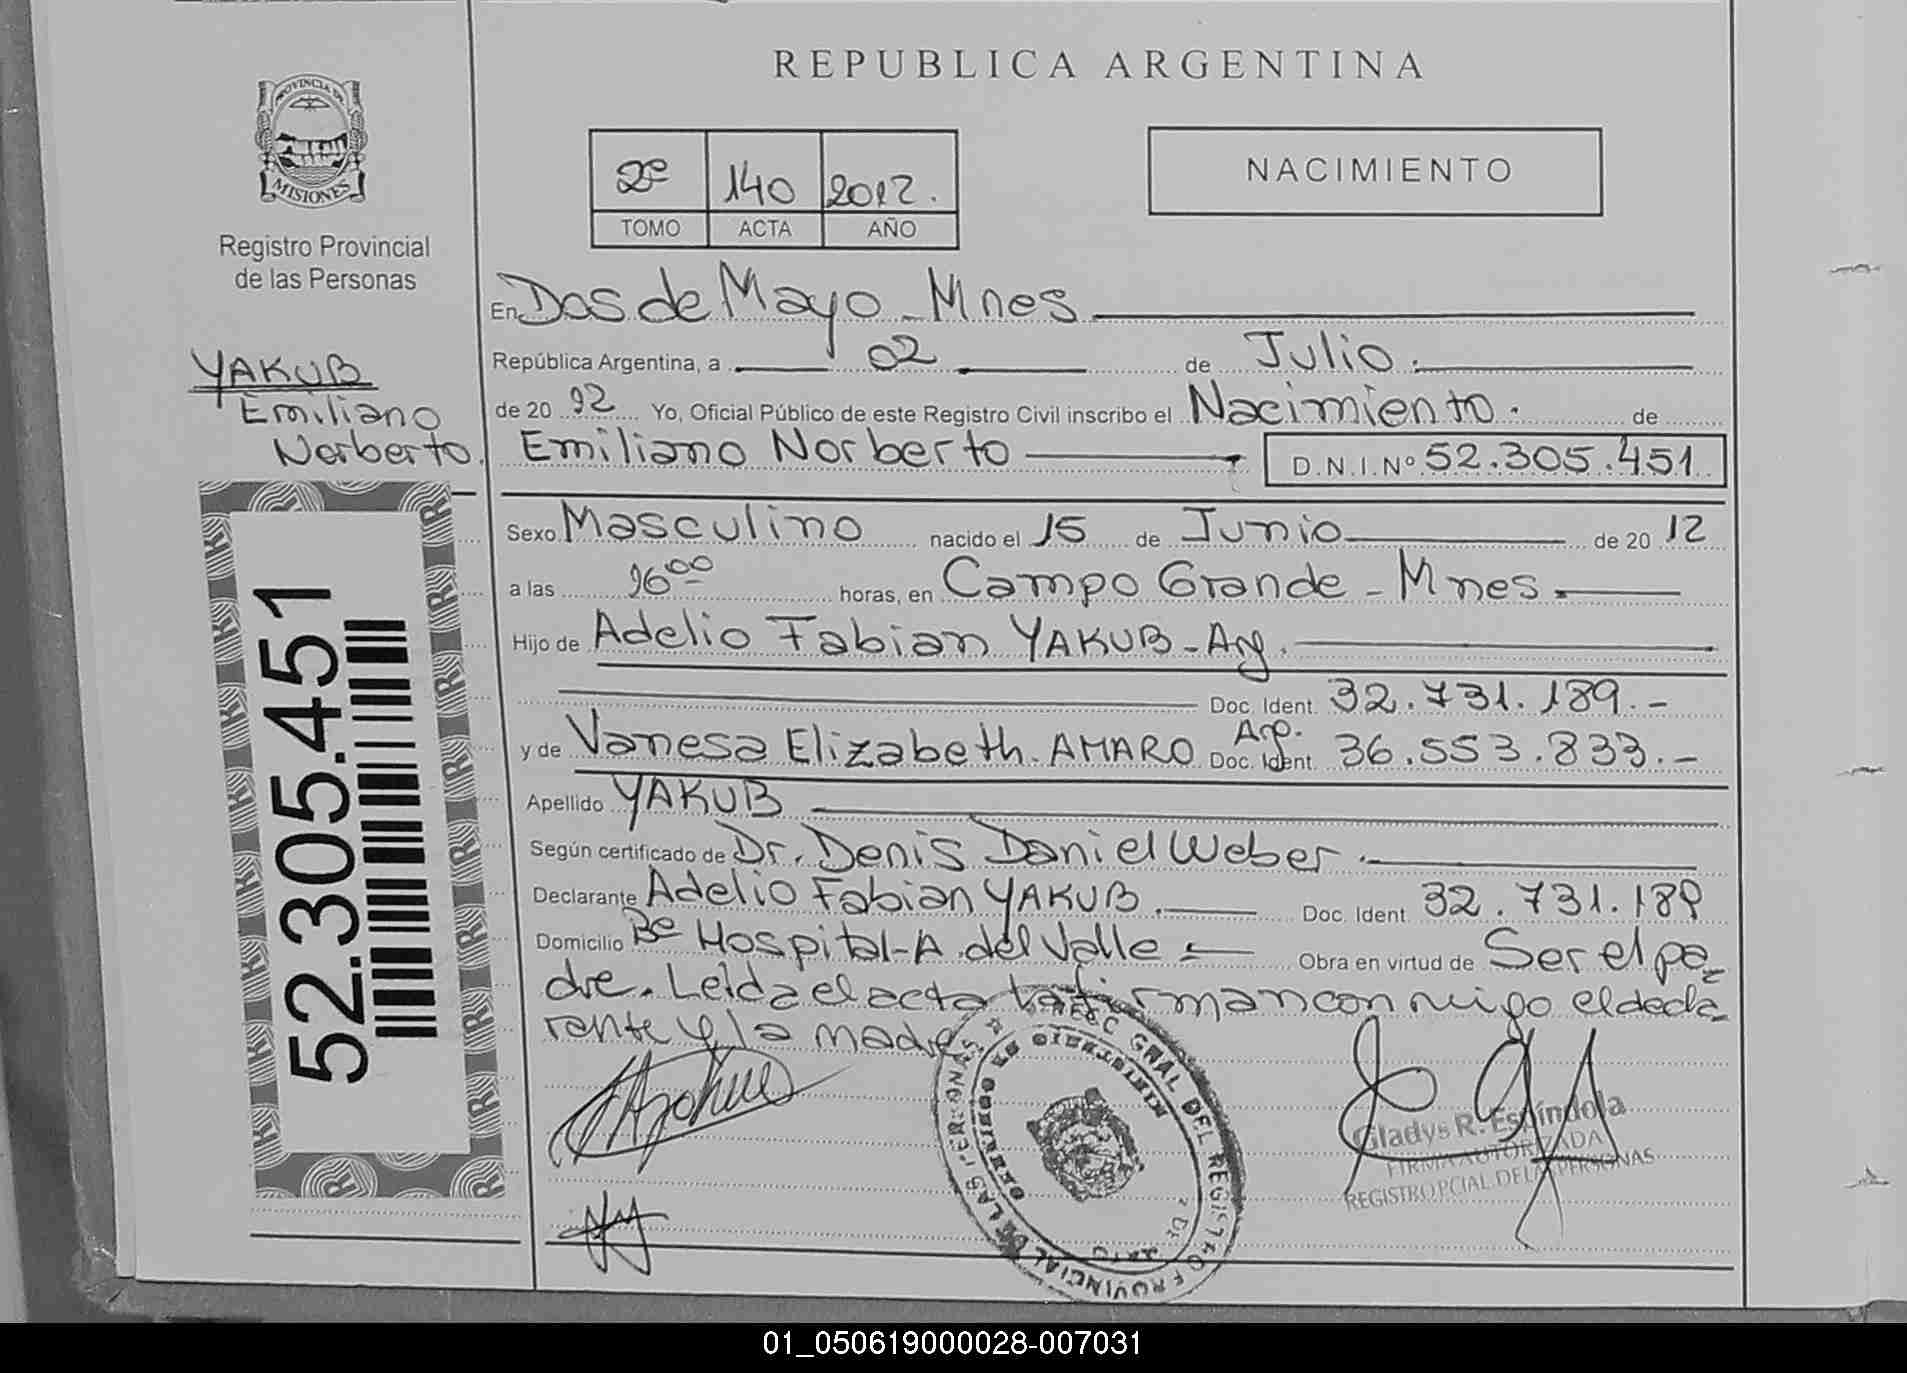 REPUBLICA ARGENTINA
PROVINCIA DE
MISIONES
Registro Provincial
de las Personas
2º 140 2012.
TOMO ACTA AÑO
NACIMIENTO
YAKUB
Emiliano
Norberto.
52.305.451
En Dos de Mayo - Mnes
República Argentina, a 02 de Julio.
de 20 12 Yo, Oficial Público de este Registro Civil inscribo el Nacimiento. de
Emiliano Norberto D.N.I.Nº 52.305.451
Sexo Masculino nacido el 15 de Junio de 20 12
a las 16⁰⁰ horas, en Campo Grande - Mnes.
Hijo de Adelio Fabian YAKUB - Arg.
Doc. Ident. 32.731.189.-
y de Vanesa Elizabeth. AMARO Arg. Doc. Ident. 36.553.833.-
Apellido YAKUB
Según certificado de Dr. Denis Daniel Weber.
Declarante Adelio Fabian YAKUB. Doc. Ident. 32.731.189
Domicilio Bº Hospital - A. del Valle Obra en virtud de Ser el pa-
dre. Leida el acta la firman conmigo el decla-
rante y la madre
DIREC GRAL DEL REGISTRO PROVINCIAL DE LAS PERSONAS
MINISTERIO DE GOBIERNO
Gladys R. Espíndola
FIRMA AUTORIZADA
REGISTRO PCIAL. DE LAS PERSONAS
01_050619000028-007031